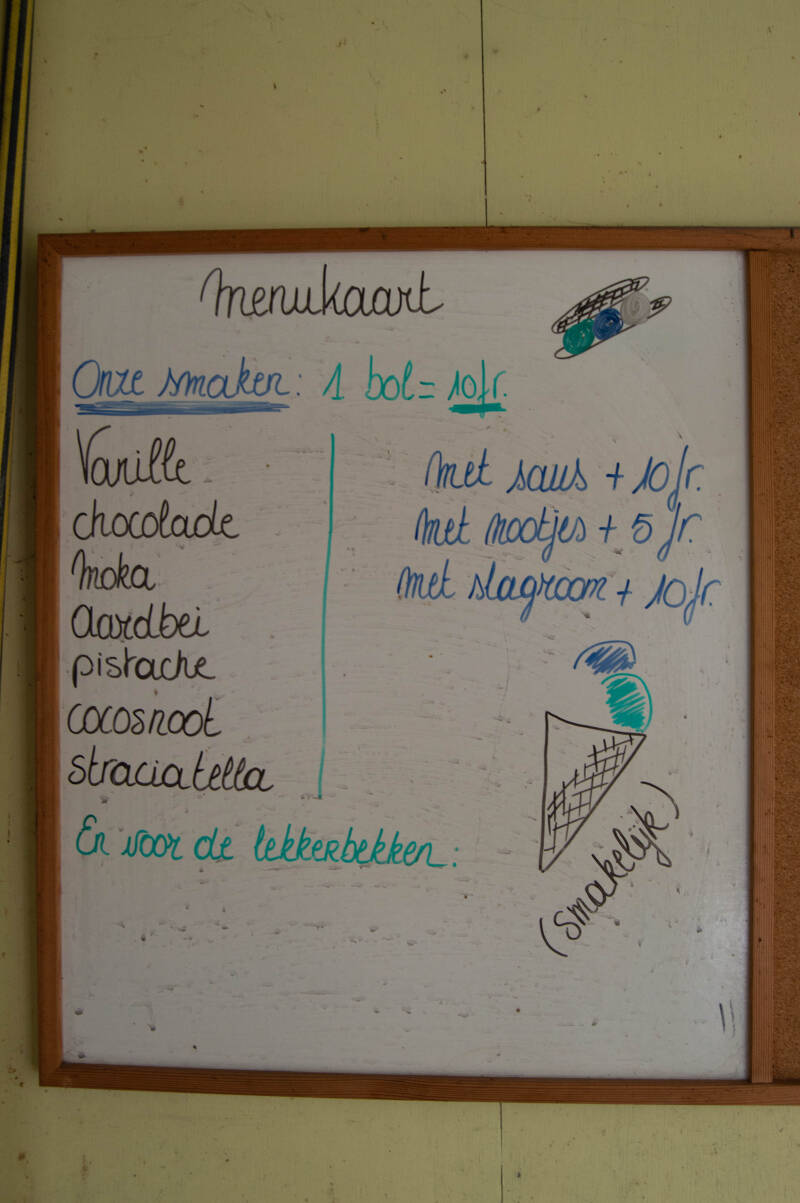 Menukaart
Onze smaken: 1 bol = 10fr.
Vanille
chocolade
Moka
Aardbei
pistache
cocosnoot
straciatella
Met saus + 10fr.
Met nootjes + 5 fr.
Met slagroom + 10fr.
En voor de lekkerbekken:
(smakelijk)